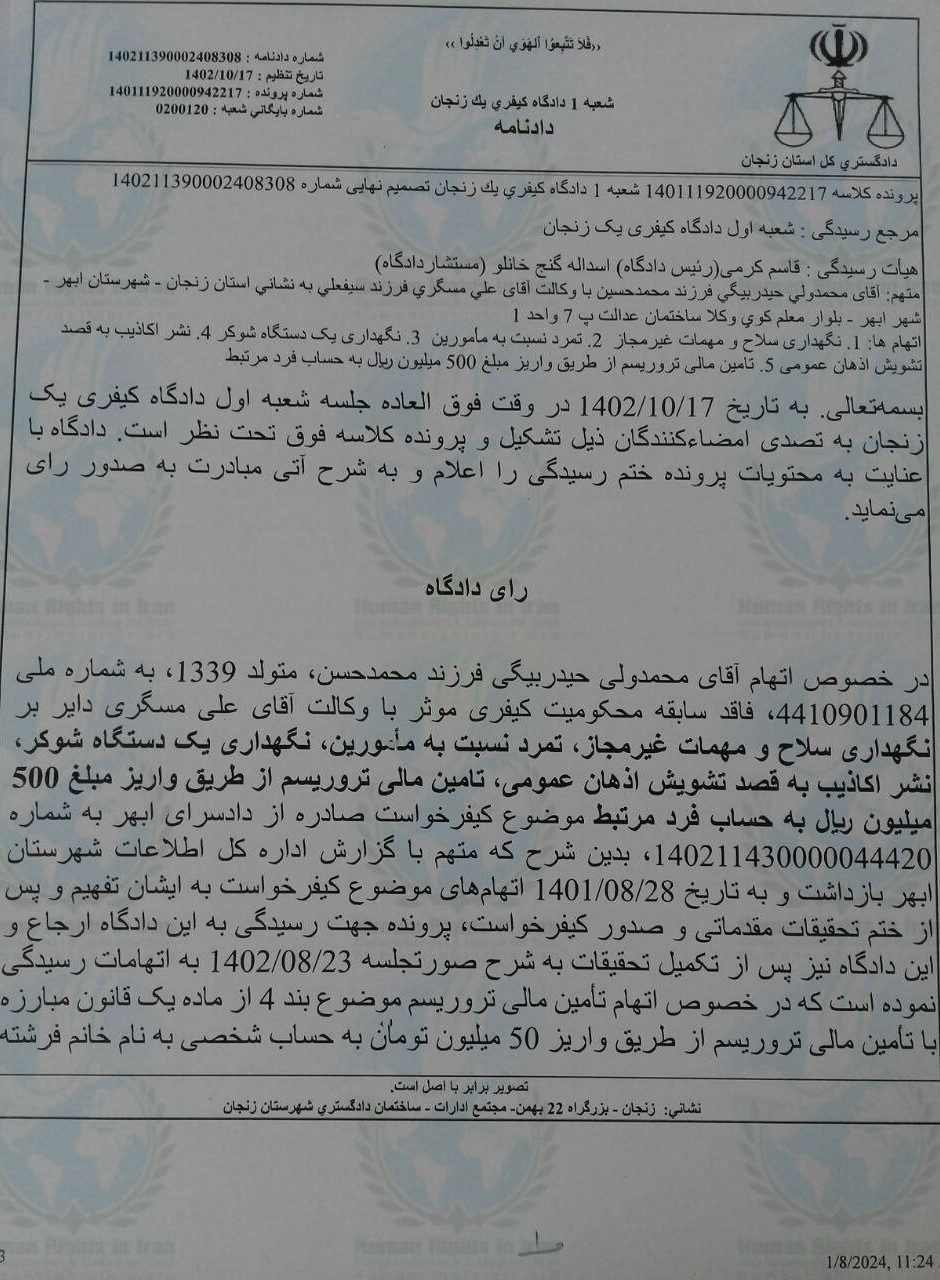 ‹‹فَلاَ تَتَّبِعُوا اَلهَوَي اَنْ تَعْدِلُوا ››
شعبه 1 دادگاه كيفري يك زنجان
دادنامه
دادگستري كل استان زنجان
شماره دادنامه : 140211390002408308
تاريخ تنظيم : 1402/10/17
شماره پرونده : 140111920000942217
شماره بايگاني شعبه : 0200120
پرونده كلاسه 140111920000942217 شعبه 1 دادگاه كيفري يك زنجان تصميم نهايی شماره 140211390002408308
مرجع رسیدگی : شعبه اول دادگاه کیفری یک زنجان
هیأت رسیدگی : قاسم کرمی(رئیس دادگاه) اسداله گنج خانلو (مستشاردادگاه)
متهم: آقای محمدولي حیدربیگي فرزند محمدحسین با وکالت آقای علي مسگري فرزند سیفعلي به نشاني استان زنجان - شهرستان ابهر -
شهر ابهر - بلوار معلم کوي وکلا ساختمان عدالت پ 7 واحد 1
اتهام ها: 1. نگهداری سلاح و مهمات غیرمجاز 2. تمرد نسبت به مأمورین 3. نگهداری یک دستگاه شوکر 4. نشر اکاذیب به قصد
تشویش اذهان عمومی 5. تامین مالی تروریسم از طریق واریز مبلغ 500 میلیون ریال به حساب فرد مرتبط
بسمه‌تعالی. به تاریخ 1402/10/17 در وقت فوق العاده جلسه شعبه اول دادگاه کیفری یک
زنجان به تصدی امضاءکنندگان ذیل تشکیل و پرونده کلاسه فوق تحت نظر است. دادگاه با
عنایت به محتویات پرونده ختم رسیدگی را اعلام و به شرح آتی مبادرت به صدور رای
می‌نماید.
رای دادگاه
در خصوص اتهام آقای محمدولی حیدربیگی فرزند محمدحسن، متولد 1339، به شماره ملی
4410901184، فاقد سابقه محکومیت کیفری موثر با وکالت آقای علی مسگری دایر بر
نگهداری سلاح و مهمات غیرمجاز، تمرد نسبت به مأمورین، نگهداری یک دستگاه شوکر،
نشر اکاذیب به قصد تشویش اذهان عمومی، تامین مالی تروریسم از طریق واریز مبلغ 500
میلیون ریال به حساب فرد مرتبط موضوع کیفرخواست صادره از دادسرای ابهر به شماره
140211430000044420، بدین شرح که متهم با گزارش اداره کل اطلاعات شهرستان
ابهر بازداشت و به تاریخ 1401/08/28 اتهام‌های موضوع کیفرخواست به ایشان تفهیم و پس
از ختم تحقیقات مقدماتی و صدور کیفرخواست، پرونده جهت رسیدگی به این دادگاه ارجاع و
این دادگاه نیز پس از تکمیل تحقیقات به شرح صورتجلسه 1402/08/23 به اتهامات رسیدگی
نموده است که در خصوص اتهام تأمین مالی تروریسم موضوع بند 4 از ماده یک قانون مبارزه
با تأمین مالی تروریسم از طریق واریز 50 میلیون تومان به حساب شخصی به نام خانم فرشته
تصویر برابر با اصل است.
نشاني: زنجان - بزرگراه 22 بهمن- مجتمع ادارات - ساختمان دادگستري شهرستان زنجان
Human Rights in Iran
1/8/2024, 11:24